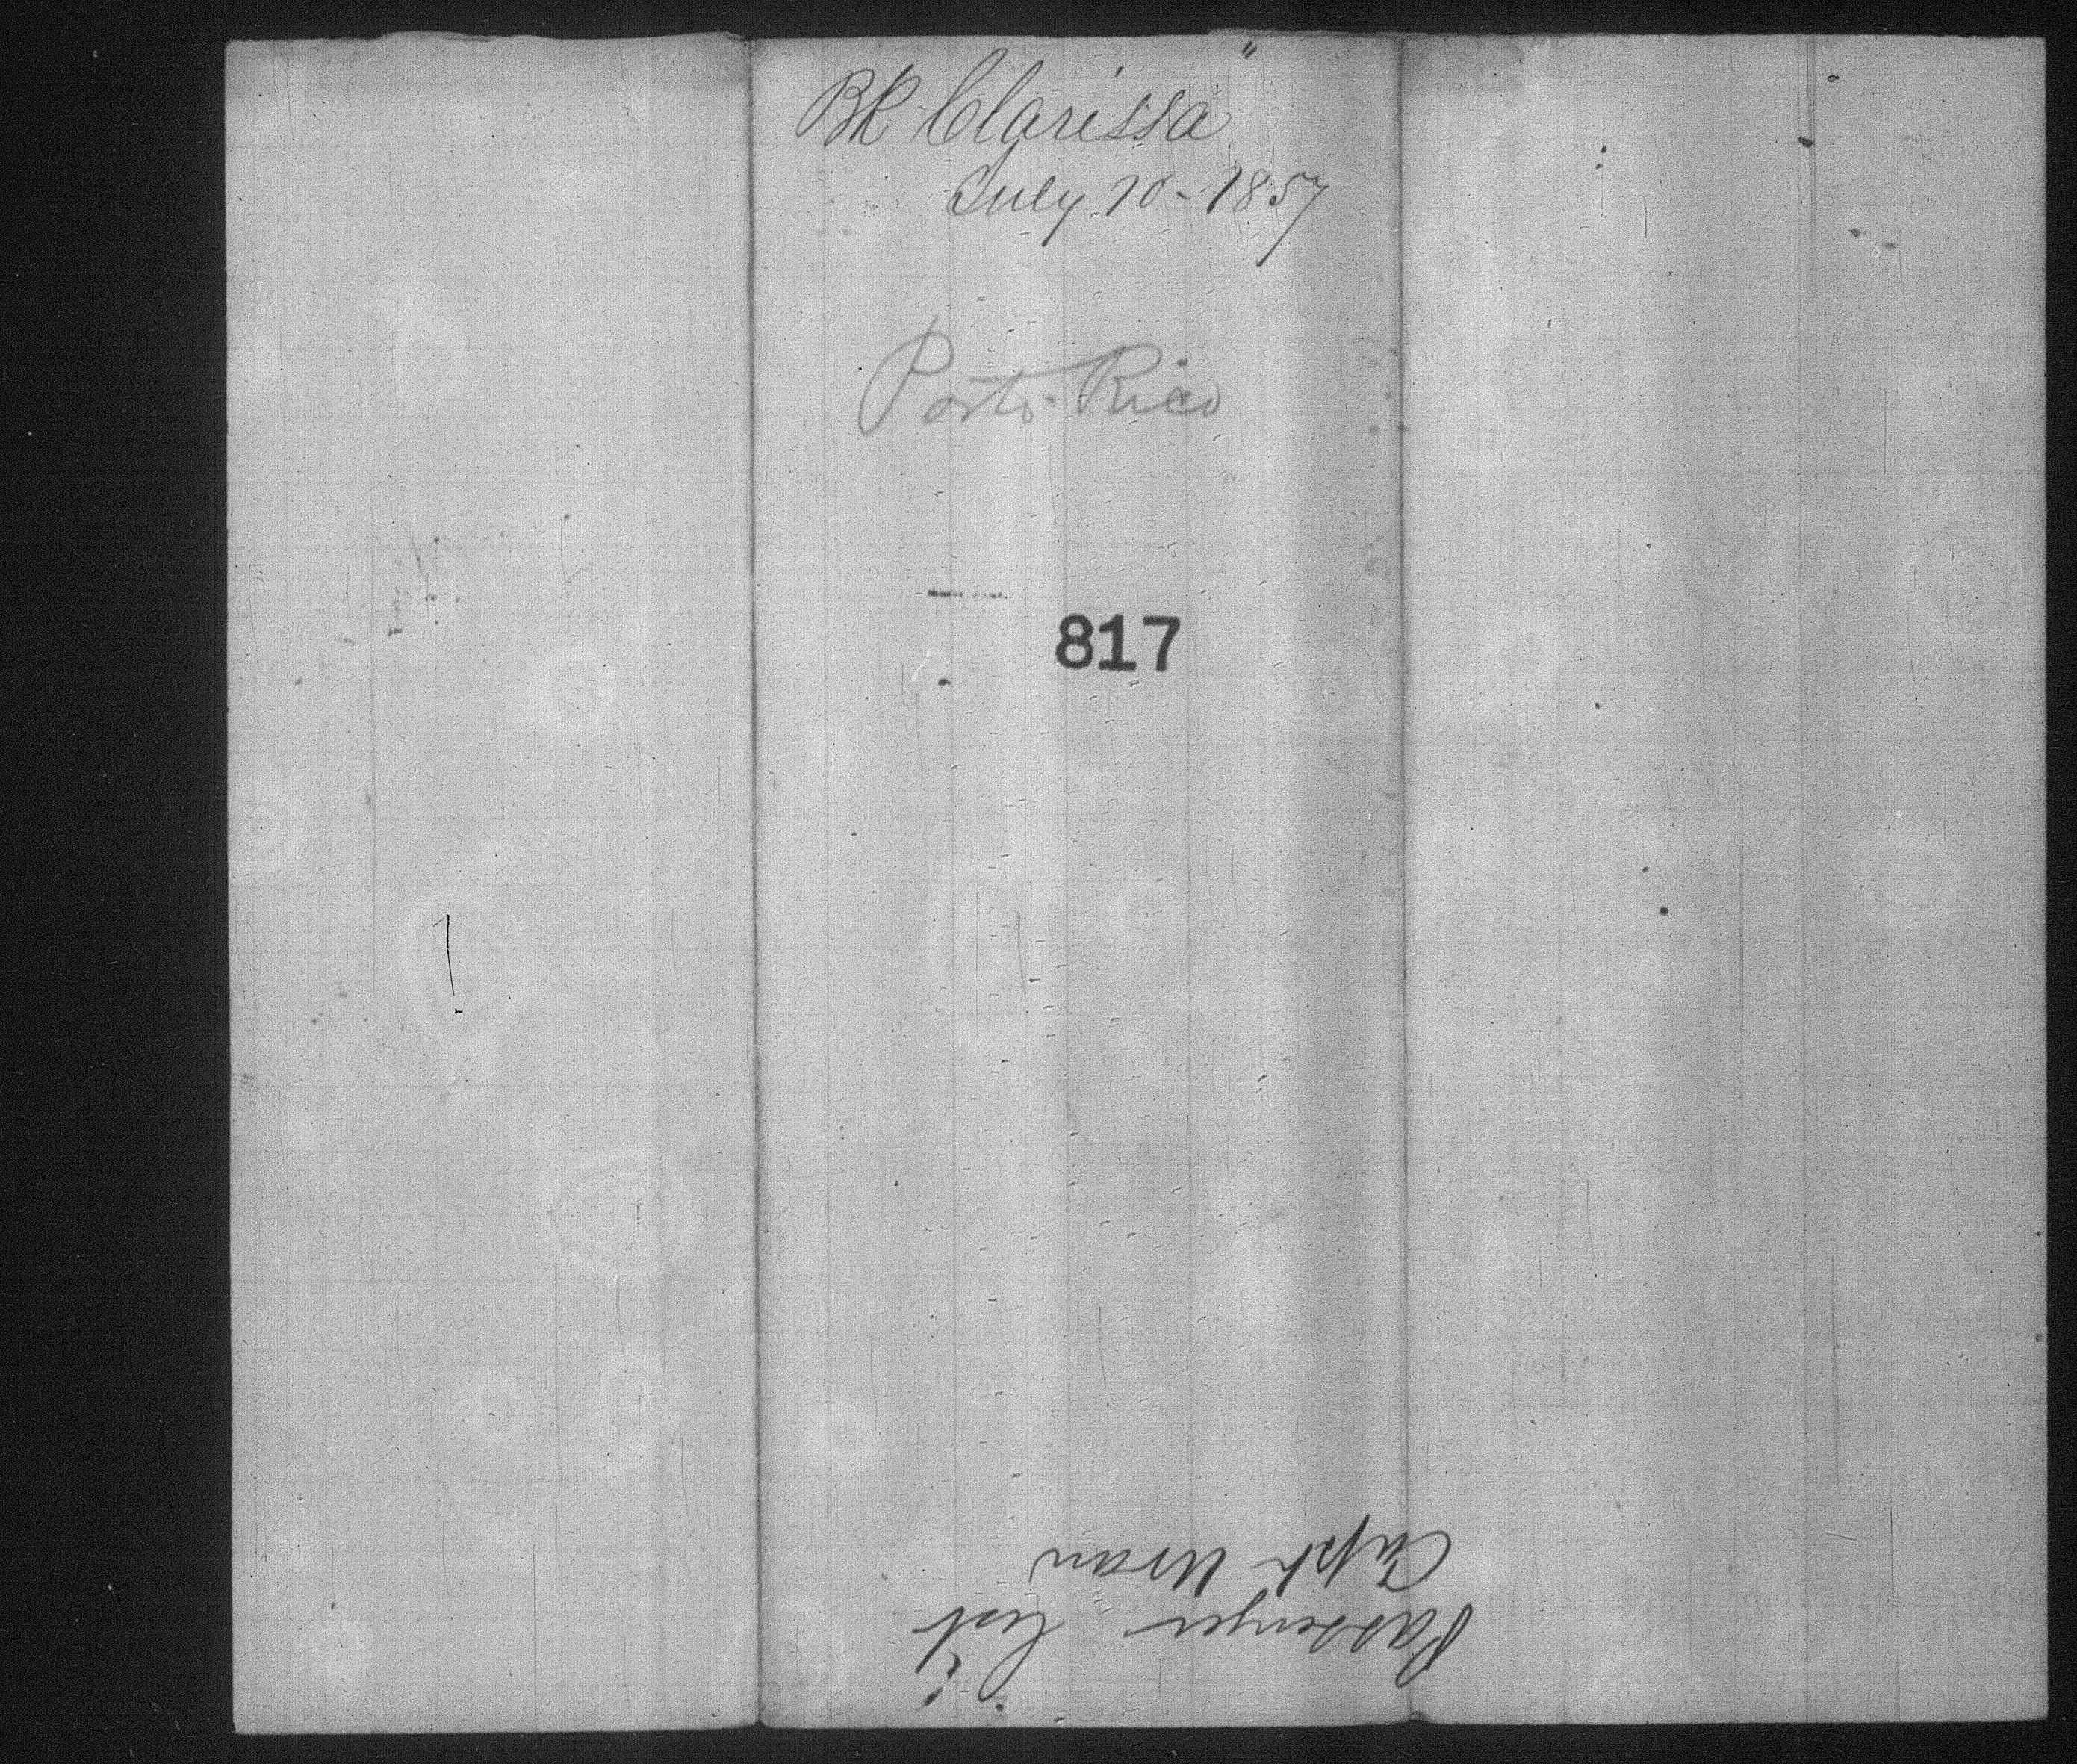 BK Clarissa"
July 10 - 1857
Porto Rico
817
Passenger List
Capt